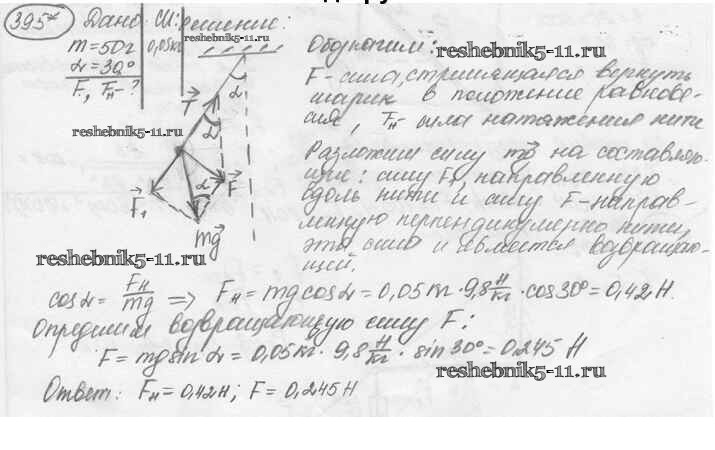 395* Дано: СИ: Решение:
m=50г 0,05кг
α=30°
F, Fн-?
reshebnik5-11.ru
Обозначим: reshebnik5-11.ru
F- сила, стремящаяся вернуть
шарик в положение равнове-
сия, Fн- сила натяжения нити
Разложим силу mg на составляю-
щие: силу F1, направленную
вдоль нити и силу F-направ-
ленную перпендикулярно нити,
эта сила и является возвращаю-
щей.
α
T
α
reshebnik5-11.ru
α F
F1
mg
reshebnik5-11.ru
cosα = Fн/mg => Fн = mg cosα = 0,05кг · 9,8 Н/кг · cos30° = 0,42Н.
Определим возвращающую силу F:
F = mg sin α = 0,05кг · 9,8 Н/кг · sin 30° = 0,245 Н
reshebnik5-11.ru
Ответ: Fн = 0,42Н; F = 0,245Н